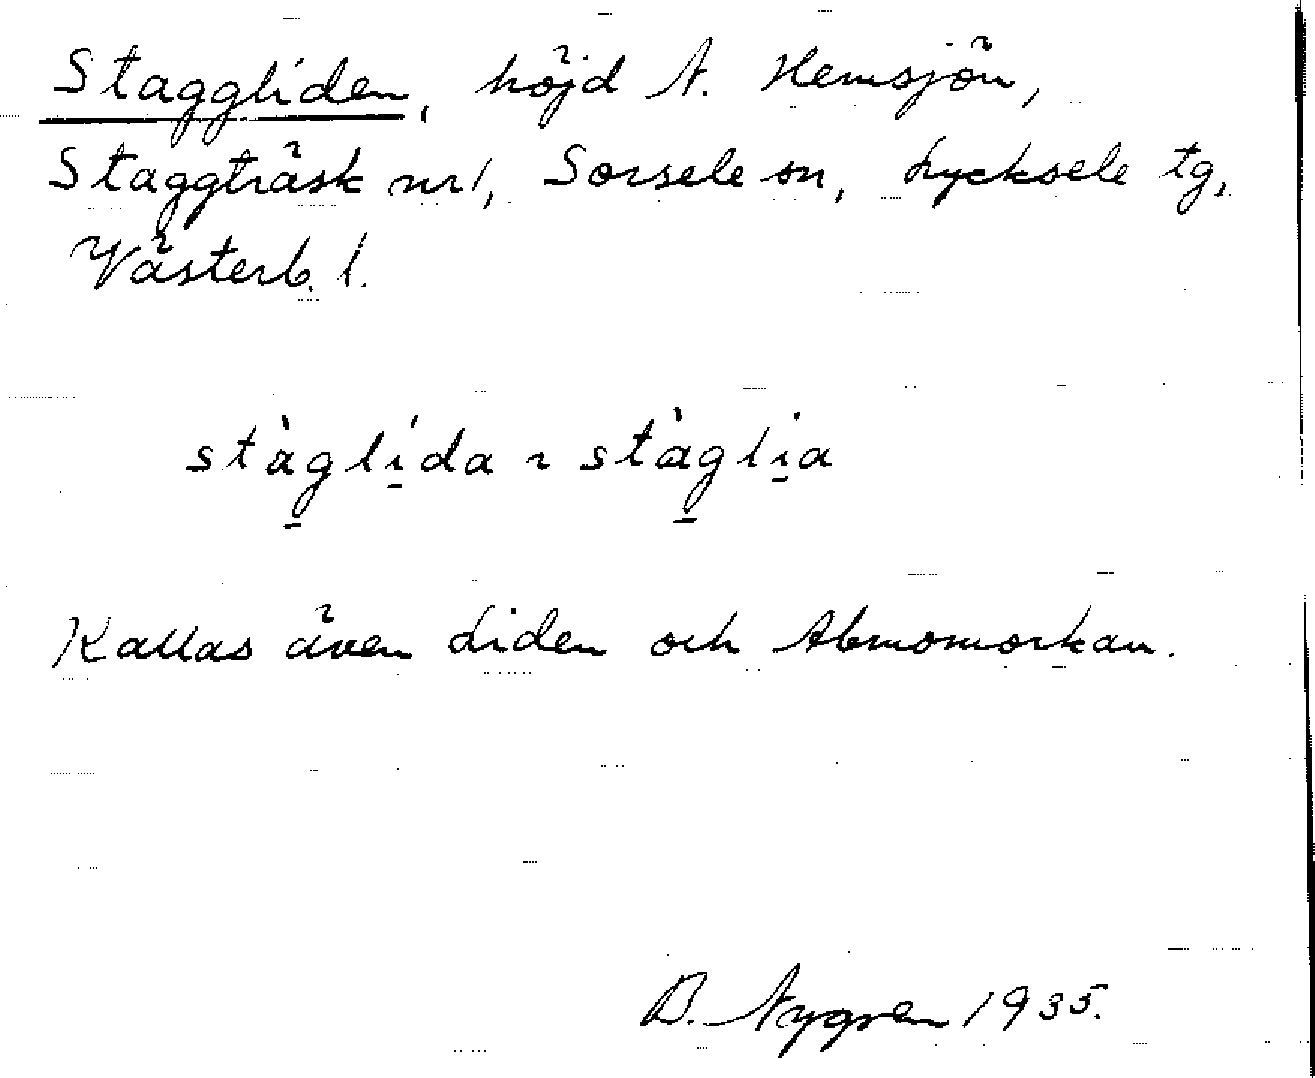 Staggliden, höjd N. Hemsjön,
Staggträsk nr 1, Sorsele sn, Lycksele tg,
Västerb. l.
stàglída ~ stàglia
Kallas även Liden och Abmomorkan.
B. Nygren 1935.